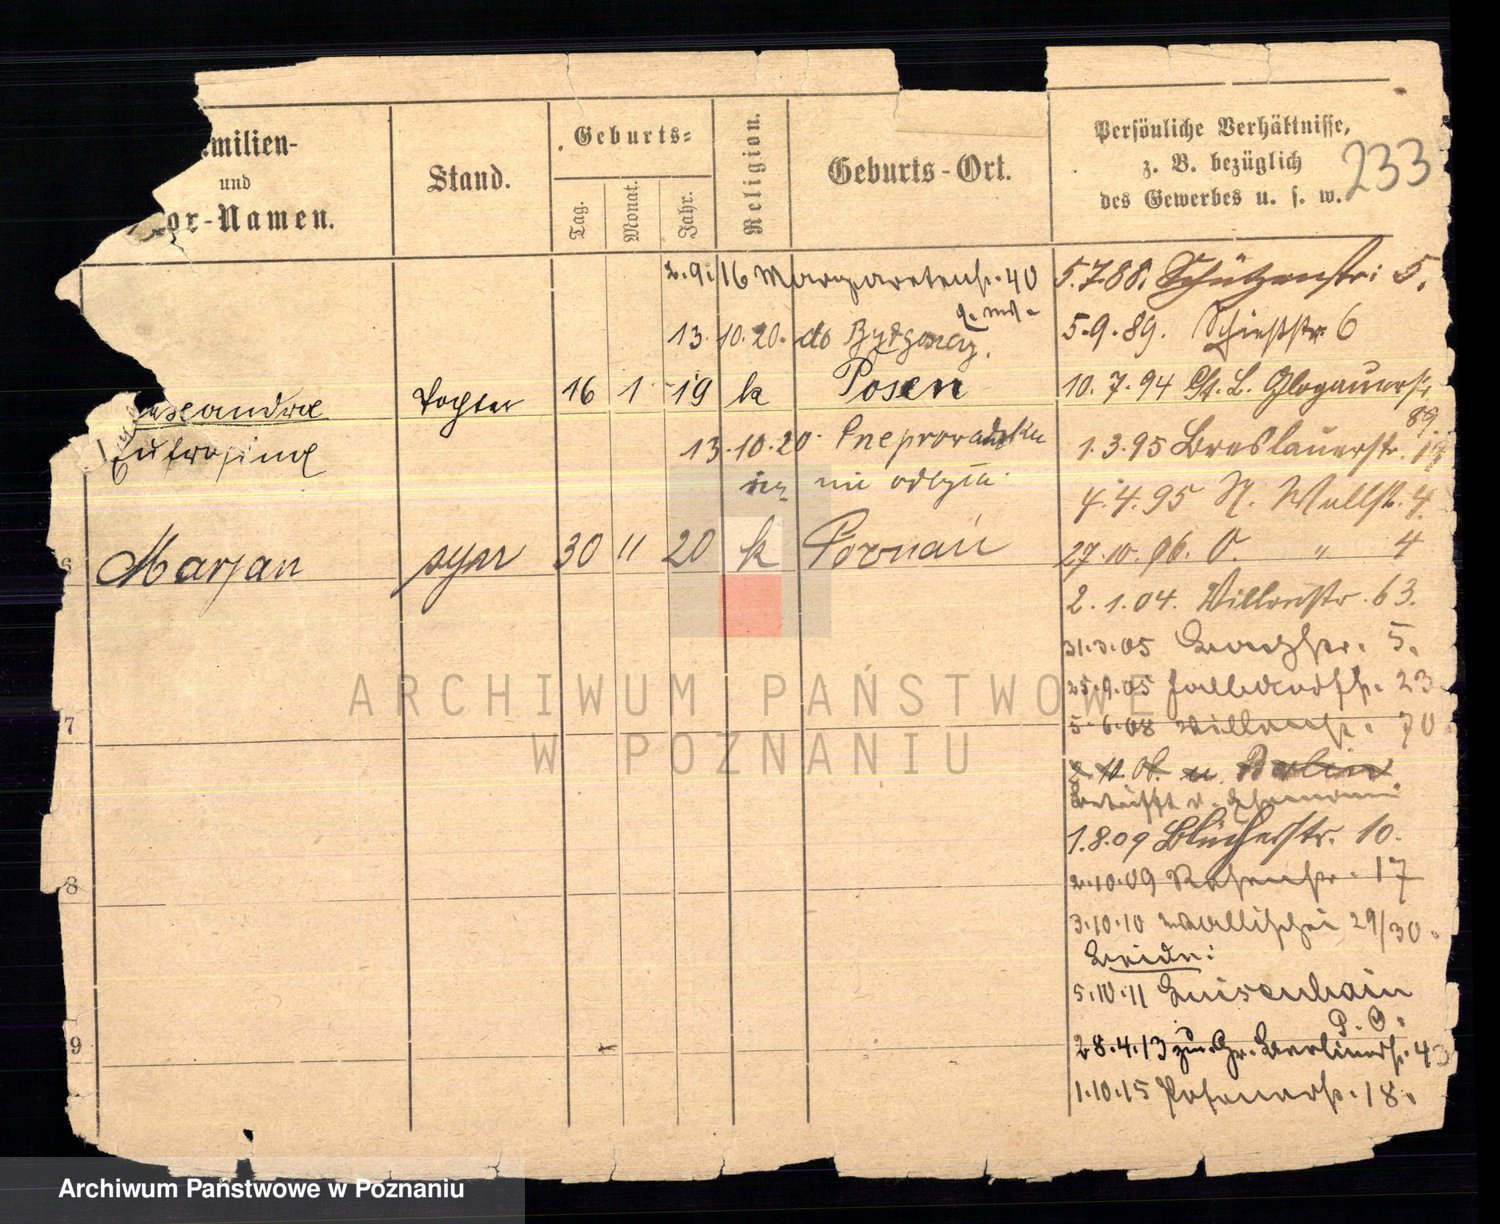 milien-
und
or-Namen.
Stand.
Geburts=
Tag.
Monat.
Jahr.
Religion.
Geburts-Ort.
Persönliche Verhältnisse,
z. B. bezüglich
des Gewerbes u. s. w.
233
2.9.16 Margaretenstr. 40
13.10.20. do Bydgoszcz.
Tochter 16 1 19 k Posen
13.10.20.
się nie odbyła
6 Marjan syn 30 11 20 k Poznań
7
8
9
5.7.88. Schützenstr: 5.
5.9.89. Schießstr 6
10.7.94 St. L. Glogauerstr
89.
1.3.95 Breslauerstr. 19
4.4.95 N. Wallstr. 4.
27.10.96. O. " 4
2.1.04. Viktoriastr. 63.
31.3.05 5.
25.9.05 23
5.6.08 70
Berlin
betrifft d. Ehemann
1.8.09 Blücherstr. 10.
2.10.09 17
3.10.10 Wallischei 29/30.
5.10.11 Luisenhain
P. O.
28.4.13 zur. Gr. Berlinerstr. 43
1.10.15 Posenerstr. 18.
ARCHIWUM PAŃSTWOWE
W POZNANIU
Archiwum Państwowe w Poznaniu